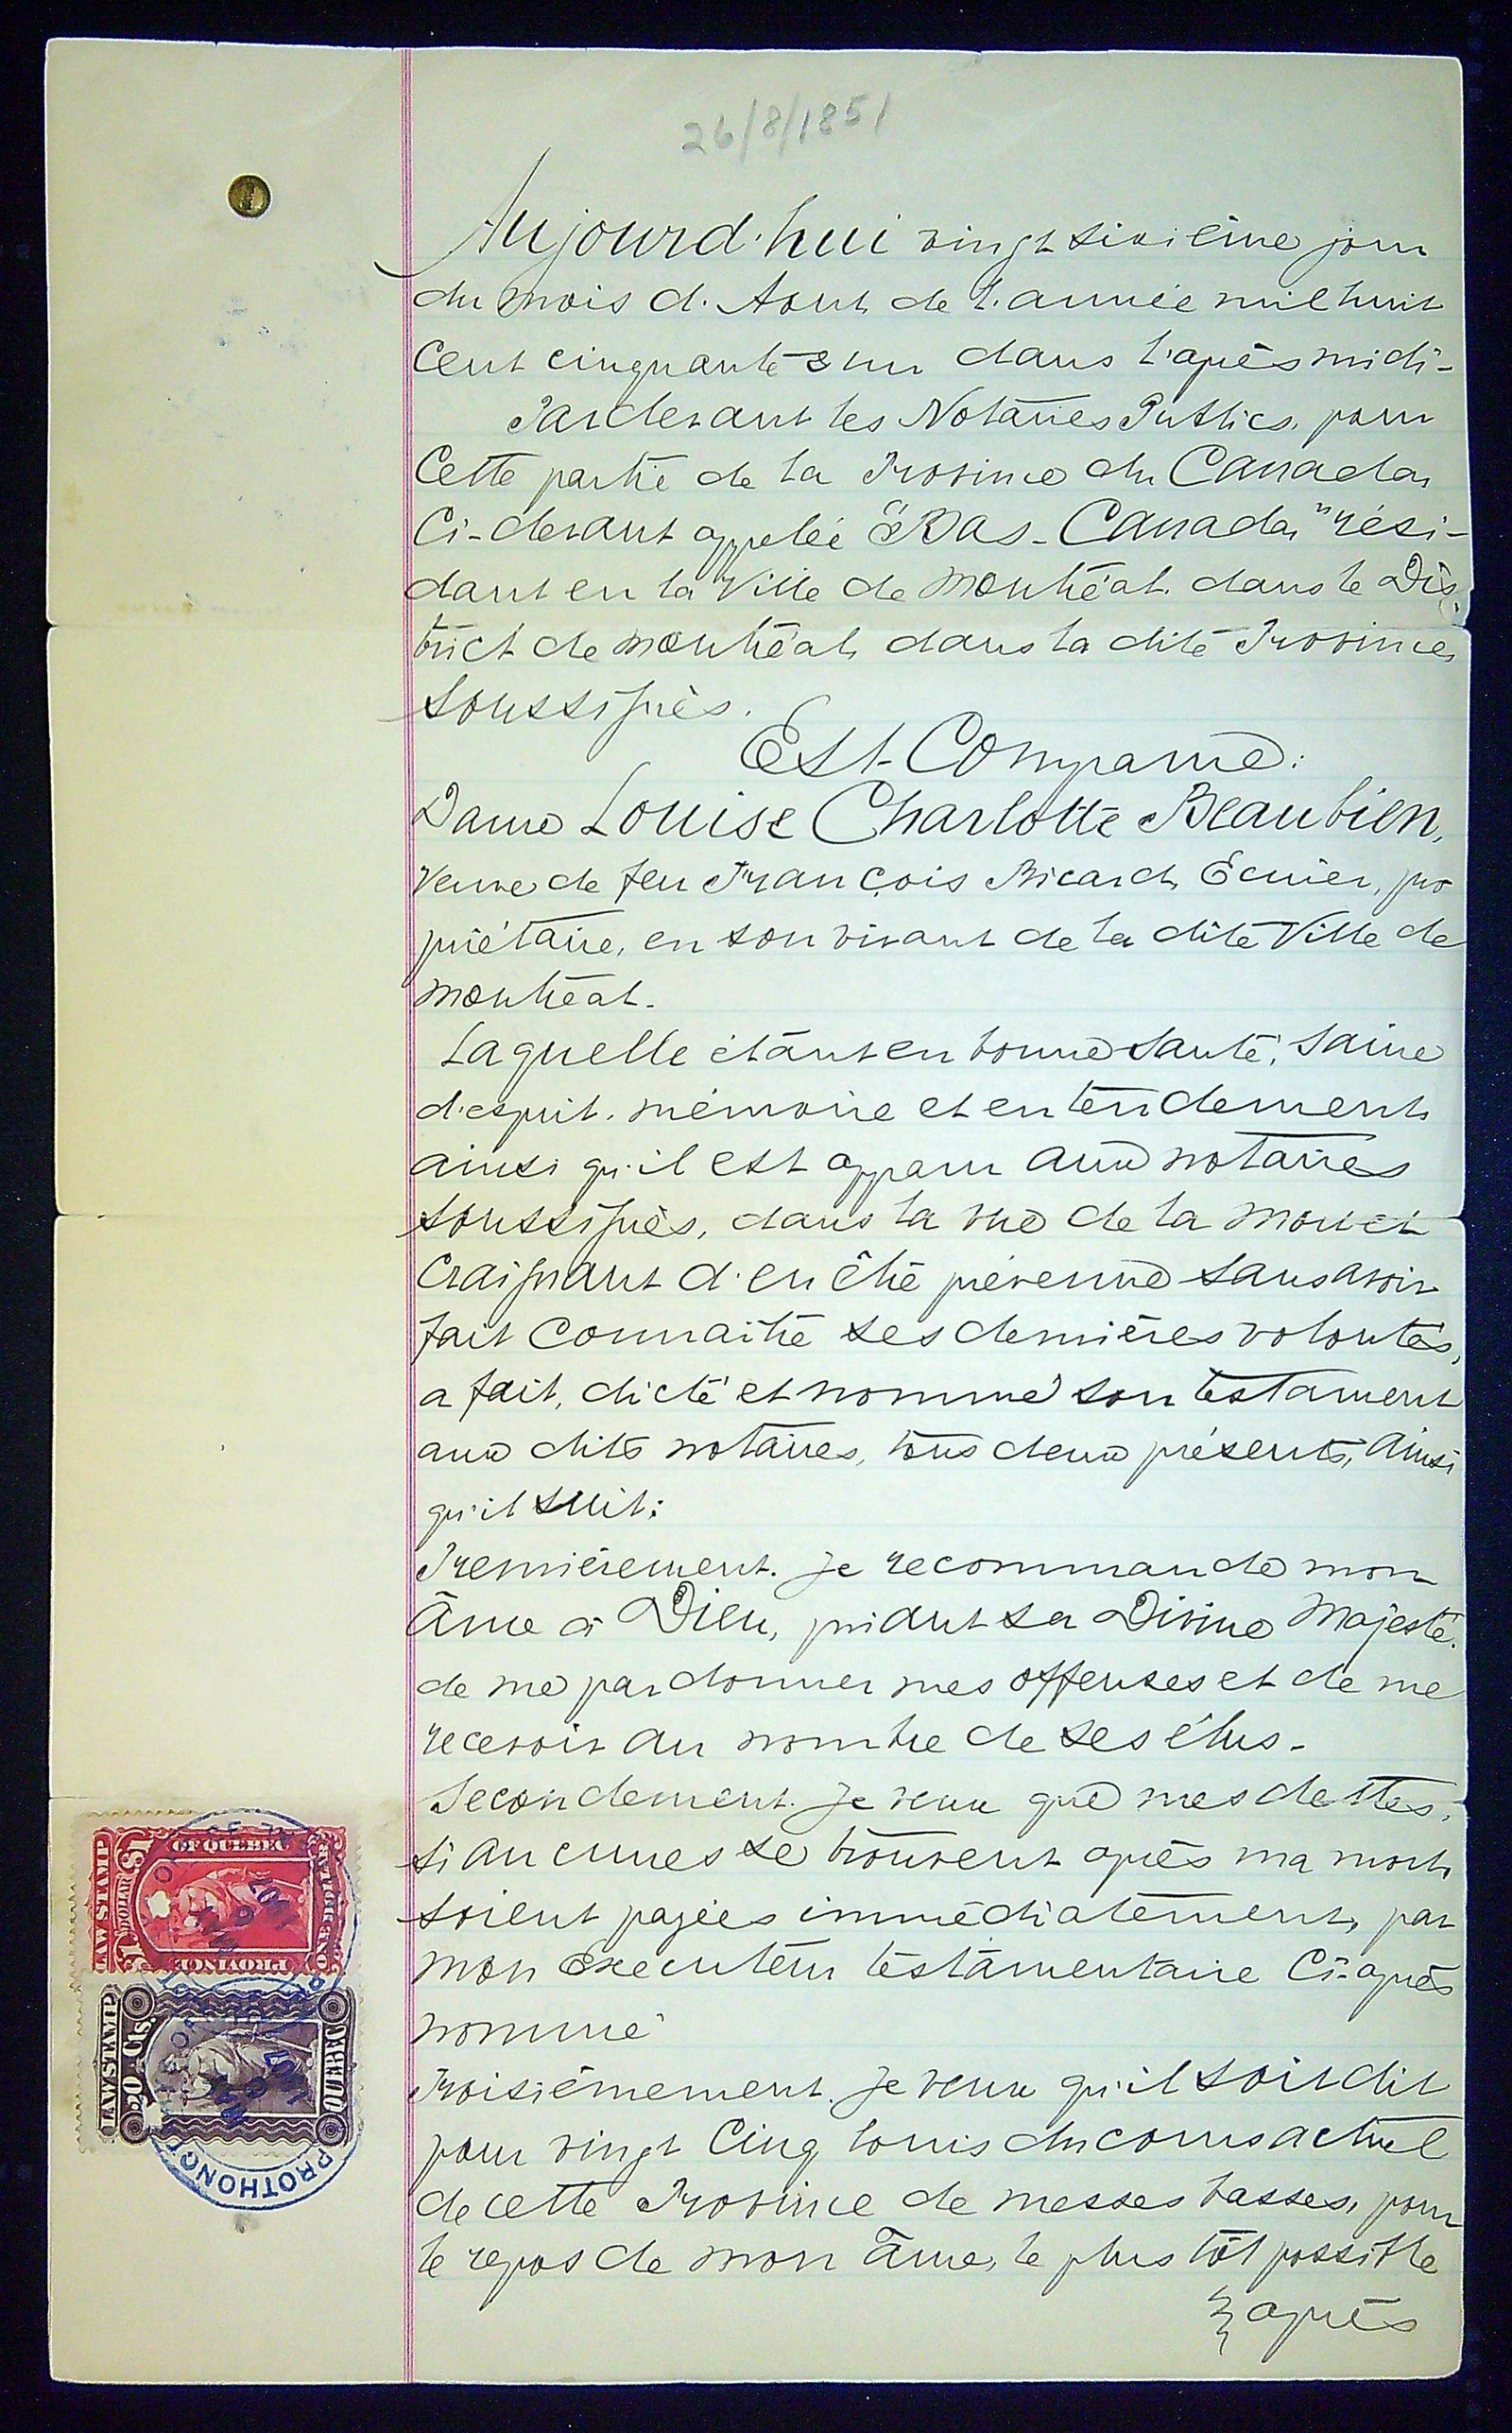 26/8/1851
Aujourd'hui vingt sixième jour
du mois d'Aout de l'année mil huit
Cent cinquante & un dans l'après midi-
Pardevant les Notaires Publics, pour
Cette partie de la Province du Canada,
Ci-devant appelée "Bas-Canada" rési-
dant en la Ville de Montréal, dans le Dis-
trict de Montréal, dans la dite Province,
Soussignés.
Est Comparue:
Dame Louise Charlotte Beaubien,
Veuve de feu François Ricard, Ecuier, pro
priétaire, en son vivant de la dite Ville de
Montréal.
Laquelle étant en bonne santé, saine
d'esprit, mémoire et entendement,
ainsi qu'il est apparu aux notaires
soussignés, dans la vue de la mort et
Craignant d'en être prévenue sans avoir
fait connaître ses dernières volontés,
a fait, dicté et nommé son testament
aux dits notaires, tous deux présents, ainsi
qu'il suit:
Premièrement. Je recommande mon
âme à Dieu, priant sa Divine Majesté.
de me pardonner mes offenses et de me
recevoir au nombre de ses élus-
Secondement. Je veux que mes dettes,
si aucunes se trouvent après ma mort,
soient payées immédiatement, par
mon Executeur testamentaire Ci-après
nommé
Troisièmement. Je veux qu'il soit dit
pour vingt Cinq louis du cours actuel
de cette Province de messes basses, pour
le repos de mon âme, le plus tôt possible
après
LAW STAMP
$1 DOLLAR
OF QUEBEC
PROVINCE
LAW STAMP
20 Cts.
QUEBEC
PROTHONOT